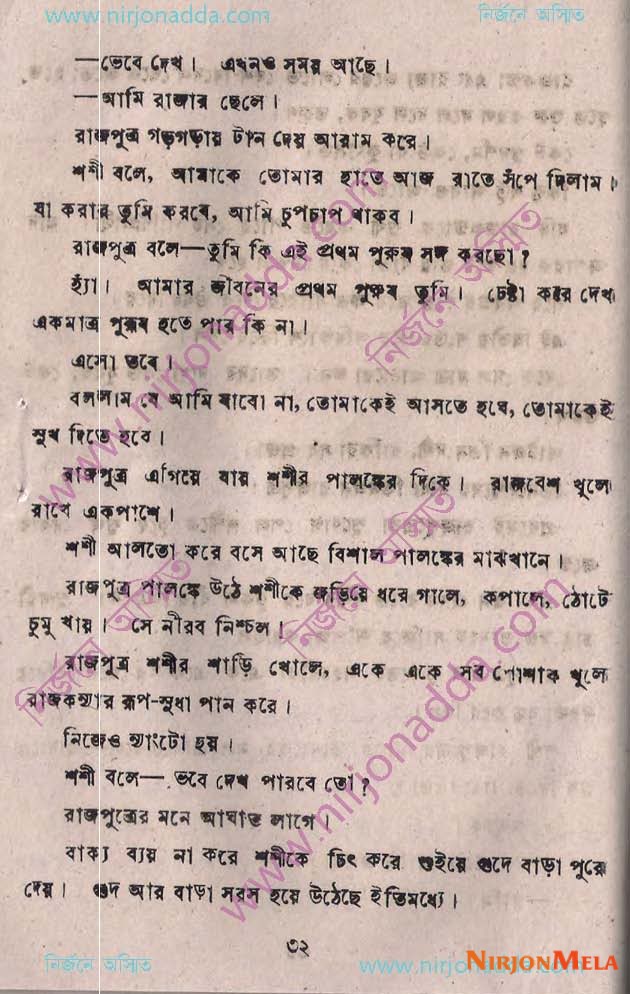 www.nirjonadda.com নির্জনে অস্মিত
—ভেবে দেখ। এখনও সময় আছে।
—আমি রাজার ছেলে।
রাজপুত্র গড়গড়ায় টান দেয় আরাম করে।
শশী বলে, আমাকে তোমার হাতে আজ রাতে সঁপে দিলাম।
যা করার তুমি করবে, আমি চুপচাপ থাকব।
রাজপুত্র বলে—তুমি কি এই প্রথম পুরুষ সঙ্গ করছো?
হ্যাঁ। আমার জীবনের প্রথম পুরুষ তুমি। চেষ্টা করে দেখ
একমাত্র পুরুষ হতে পার কি না।
এসো তবে।
বললাম যে আমি যাবো না, তোমাকেই আসতে হবে, তোমাকেই
সুখ দিতে হবে।
রাজপুত্র এগিয়ে যায় শশীর পালঙ্কের দিকে। রাজবেশ খুলে
রাখে একপাশে।
শশী আলতো করে বসে আছে বিশাল পালঙ্কের মাঝখানে।
রাজপুত্র পালঙ্কে উঠে শশীকে জড়িয়ে ধরে গালে, কপালে, ঠোটে
চুমু খায়। সে নীরব নিশ্চল।
রাজপুত্র শশীর শাড়ি খোলে, একে একে সব পোশাক খুলে
রাজকন্যার রূপ-সুধা পান করে।
নিজেও ন্যাংটো হয়।
শশী বলে— ভবে দেখ পারবে তো?
রাজপুত্রের মনে আঘাত লাগে।
বাক্য ব্যয় না করে শশীকে চিৎ করে শুইয়ে গুদে বাড়া পুরে
দেয়। গুদ আর বাড়া সরস হয়ে উঠেছে ইতিমধ্যে।
৩২
নির্জনে অস্মিত www.nirjonadda.com
NIRJONMELA